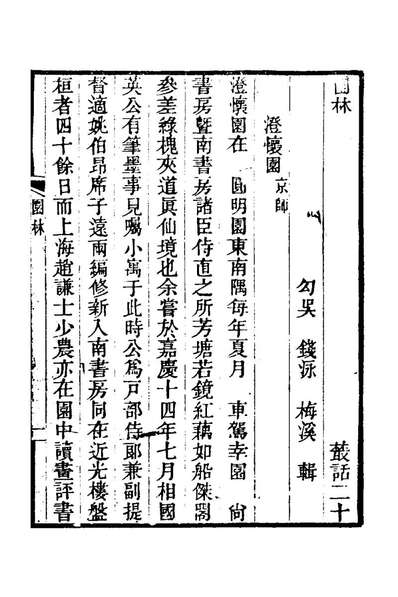 園林　叢話二十
勾吳　錢泳　梅溪　輯
澄懷園 京師
澄懷園在　圓明園東南隅每年夏月　車駕幸園　尚
書房暨南書房諸臣侍直之所芳塘若鏡紅藕如船傑閣
參差綠槐夾道眞仙境也余嘗於嘉慶十四年七月相國
英公有筆墨事見囑小寓于此時公爲戸部侍郎兼副提
督適姚伯昂席子遠兩編修新入南書房同在近光樓盤
桓者四十餘日而上海趙謙士少農亦在園中讀畫評書
園林